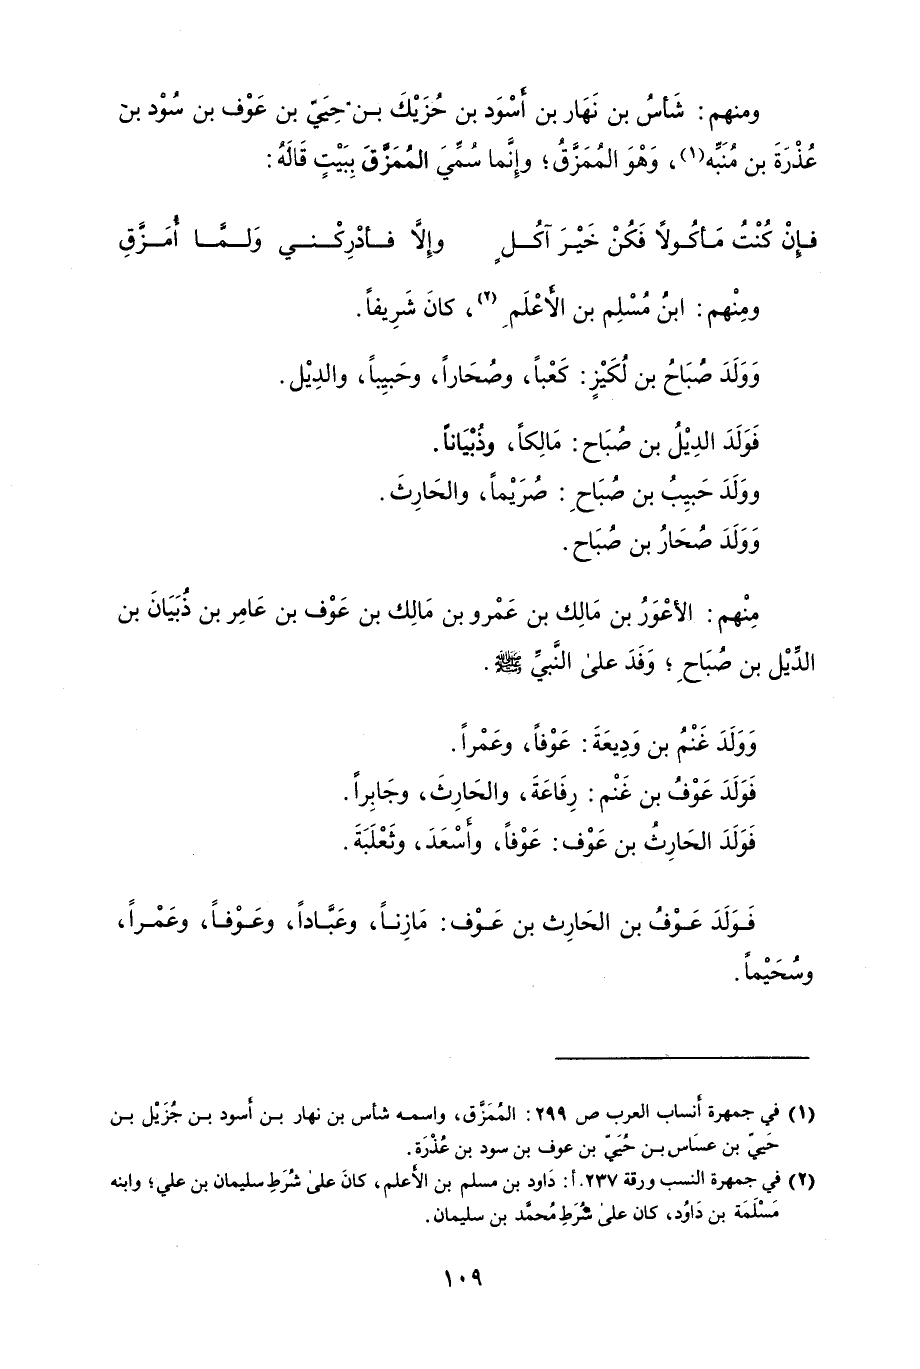 ومنهم: شَأسُ بن نَهَار بن أَسْوَد بن حُزَيْكَ بـن حِيَيّ بن عَوْف بن سُوْد بن
عُذْرَةَ بن مُنَبِّه(١)، وَهْوَ المُمَزَّقُ؛ وإنَّما سُمِّيَ المُمَزَّقَ بِبَيْتٍ قَالَهُ:
فـإنْ كُنْتُ مَـأكُـولاً فَكُنْ خَيْـرَ آكُـلٍ وإلَّا فَـأدْرِكْـنـي وَلَـمَّـا أُمَـزَّقِ
ومِنْهم: ابنُ مُسْلِم بن الأَعْلَمِ(٢)، كانَ شَرِيفاً.
وَوَلَدَ صُبَاحُ بن لُكَيْزٍ: كَعْباً، وصُحَاراً، وحَبِيباً، والدِيْل.
فَوَلَدَ الدِيْلُ بن صُبَاح: مَالِكاً، وذُبْيَاناً.
ووَلَدَ حَبِيبُ بن صُبَاحٍ: صُرَيْماً، والحَارِثَ.
وَوَلَدَ صُحَارُ بن صُبَاح.
مِنْهم: الأعْوَرُ بن مَالِك بن عَمْرو بن مَالِك بن عَوْف بن عَامِر بن ذُبَيَانَ بن
الدِّيْل بن صُبَاحٍ؛ وَفَدَ علىٰ النَّبيِّ ﷺ.
وَوَلَدَ غَنْمُ بن وَدِيعَةَ: عَوْفاً، وعَمْراً.
فَوَلَدَ عَوْفُ بن غَنْم: رِفَاعَةَ، والحَارِثَ، وجَابِراً.
فَوَلَدَ الحَارِثُ بن عَوْف: عَوْفاً، وأَسْعَدَ، وثَعْلَبَةَ.
فَـوَلَدَ عَـوْفُ بن الحَارِث بن عَـوْف: مَازِنـاً، وعَبَّـاداً، وعَـوْفـاً، وعَمْـراً،
وسُحَيْماً.
(١) في جمهرة أنساب العرب ص ٢٩٩: المُمَزَّق، واسمـه شأس بن نهار بـن أسود بـن جُزَيْل بـن
حَيَيّ بن عسَاس بـن حُيَيّ بن عوف بن سود بن عُذْرَة.
(٢) في جمهرة النسب ورقة ٢٣٧.أ: دَاود بن مسلم بن الأَعلم، كانَ علىٰ شُرَطِ سليمان بن علي؛ وابنه
مَسْلَمَة بن دَاوُد، كان علىٰ شُرَطِ مُحمَّد بن سليمان.
١٠٩